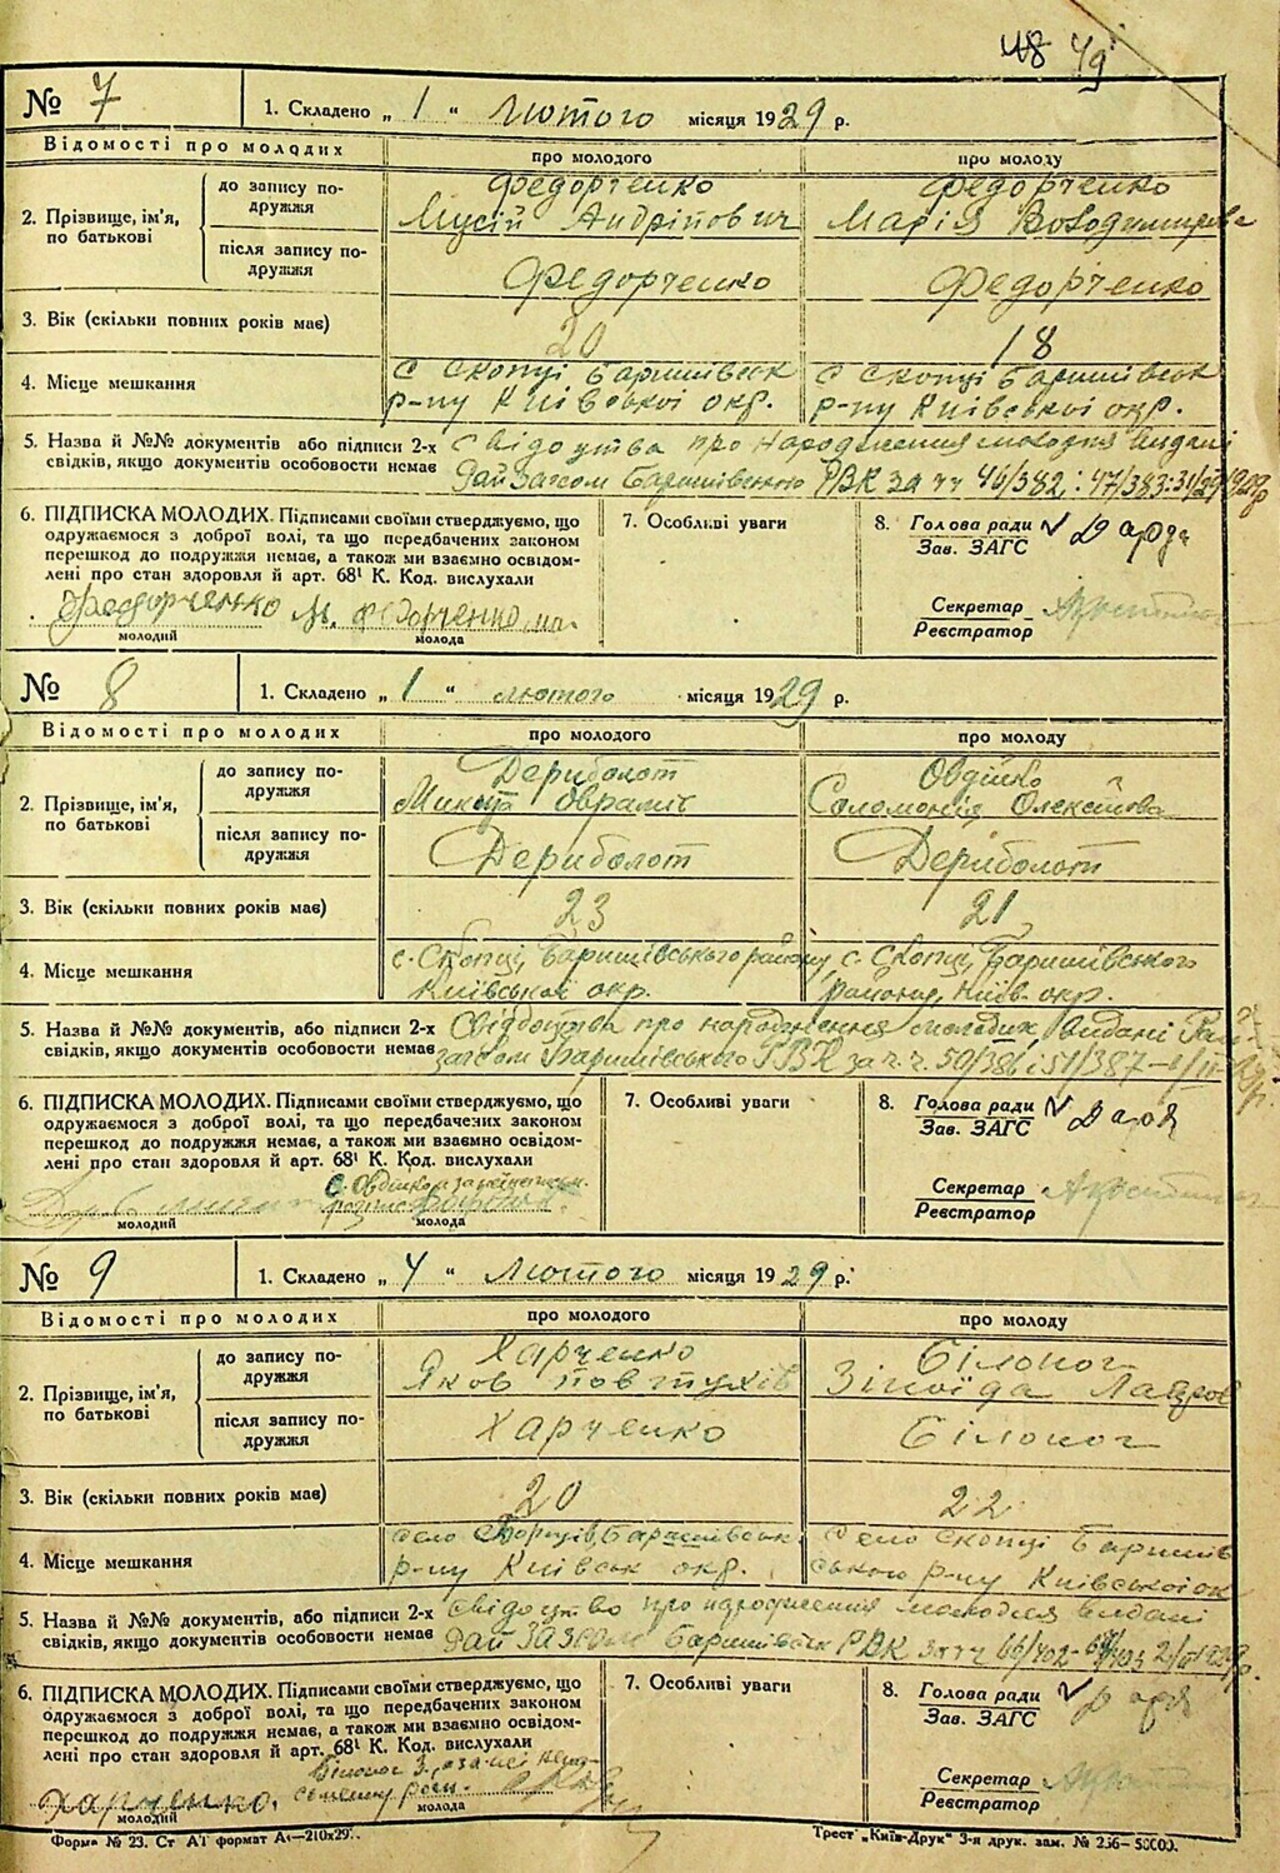 48 49
№ 7 1. Складено „ 1 “ лютого місяця 1929 р.
Відомості про молодих про молодого про молоду
2. Прізвище, ім'я, по батькові
до запису по-дружжя
Федорченко Федорченко
Мусій Андріпович Марія Володимирова
після запису по-дружжя
Федорченко Федорченко
3. Вік (скільки повних років має) 20 18
4. Місце мешкання с Скопці Баришівськ с Скопці Баришівськ
р-ну Київської окр. р-ну Київської окр.
5. Назва й №№ документів або підписи 2-х Свідоцтва про народження молодих видані
свідків, якщо документів особовости немає Райзагсом Баришівською РВК за чч 46/382,: 47/383: 31/
6. ПІДПИСКА МОЛОДИХ. Підписами своїми стверджуємо, що 7. Особливі уваги 8. Голова ради
одружаємося з доброї волі, та що передбачених законом Зав. ЗАГС
перешкод до подружжя немає, а також ми взаємно освідом-
лені про стан здоровля й арт. 68¹ К. Код. вислухали Секретар
Федорченко М. Федорченко ма. Реєстратор
молодий молода
№ 8 1. Складено „ 1 “ лютого місяця 1929 р.
Відомості про молодих про молодого про молоду
2. Прізвище, ім'я, по батькові
до запису по-дружжя
Дериболот Овдійко
Микита Соломонія Олексіїва
після запису по-дружжя
Дериболот Дериболот
3. Вік (скільки повних років має) 23 21
4. Місце мешкання с. Скопці, Баришівського району, с. Скопці, Баришівського
Київської окр. району, Київ. окр.
5. Назва й №№ документів, або підписи 2-х Свідоцтва про народження молодих, видані Рай-
свідків, якщо документів особовости немає загсом Баришівського РВК за ч.ч. 50/386 і 51/387 – 1/II–29 р.
6. ПІДПИСКА МОЛОДИХ. Підписами своїми стверджуємо, що 7. Особливі уваги 8. Голова ради
одружаємося з доброї волі, та що передбачених законом Зав. ЗАГС
перешкод до подружжя немає, а також ми взаємно освідом-
лені про стан здоровля й арт. 68¹ К. Код. вислухали Секретар
С. Овдійко а за неписьм.
розпис Реєстратор
молодий молода
№ 9 1. Складено „ 4 “ лютого місяця 1929 р.
Відомості про молодих про молодого про молоду
2. Прізвище, ім'я, по батькові
до запису по-дружжя
Харченко Білоног
Яков Повтухів Зіноїда Лавров
після запису по-дружжя
Харченко Білоног
3. Вік (скільки повних років має) 20 22
4. Місце мешкання село Скопців, Баришівськ село Скопці Баришів
р-ну Київськ окр. ського р-ну Київської ок
5. Назва й №№ документів, або підписи 2-х свідоцтво про народження молодих видані
свідків, якщо документів особовости немає Рай ЗАГСом Баришівськ РВК за чч 66/402- 67/403 2/II 1929р.
6. ПІДПИСКА МОЛОДИХ. Підписами своїми стверджуємо, що 7. Особливі уваги 8. Голова ради
одружаємося з доброї волі, та що передбачених законом Зав. ЗАГС
перешкод до подружжя немає, а також ми взаємно освідом-
лені про стан здоровля й арт. 68¹ К. Код. вислухали Секретар
Білоног З., а за неї непи-
Харченко. сьменну розп. Реєстратор
молодий молода
Форма № 23. Ст А1 формат А₄—210х297. Трест „Київ-Друк“ 3-я друк. зам. № 256— 50000.